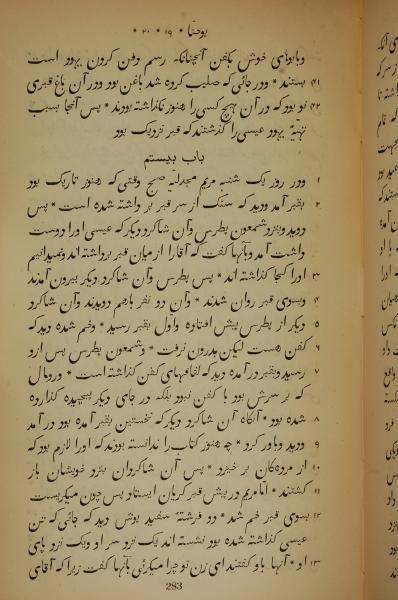 یوحنّا * ۱۹ * ۲۰ *
وبابوهای خوش بکفن آنچنانکه رسم دفن کردن یهود است
۴۱ بستند * ودر جائی که صلیب کرده شد باغی بود ودر آن باغ قبری
۴۲ نو بود که در آن هیچ کسی را هنوز نگذاشته بودند * پس آنجا بسبب
تهیّهٔ یهود عیسی را گذشتند که قبر نزدیک بود
باب بیستم
۱ ودر روز یک شنبه مریم مجدلیّه صبح وقتی که هنوز تاریک بود
۲ بقبر آمد ودید که سنگ از سر قبر برداشته شده است * پس
دوید ونزد شمعون پطرس وآن شاکرد دیکر که عیسی اورا دوست
داشت آمد وبآنها کفت که آقارا از میان قبر برداشته اند ونمیدانیم
۳ اورا کجا گذاشته اند * پس پطرس وآن شاکرد دیکر بیرون آمدند
۴ وبسوی قبر روان شدند * وآن دو نفر باهم دویدند وآن شاکرد
۵ دیکر از پطرس پیش افتاده واوّل بقبر رسید * وخم شده دید که
۶ کفن هست لیکن بدرون نرفت * وشمعون پطرس پس ازو
۷ رسید وبقبر در آمده دید که لفافهای کفن گذاشته است * ورومال
که بر سرش بود با کفن نبود بلکه در جای دیکر پیچیده گذارده
۸ شده بود * آنکاه آن شاکرد دیکر که نخستین بقبر آمده بود در آمد
۹ ودید وباور کرد * چه هنوز کتاب را ندانسته بودند که اورا لازم بود که
۱۰ از مردهکان بر خیزد * پس آن شاکردان بنزد خویشان باز
۱۱ کشتند * امّا مریم در پیش قبر کریان ایستاد پس چون میکریست
۱۲ بسوی قبر خم شد * دو فرشتهٔ سفید پوش دید که جائی که تن
عیسی گذاشته شده بود نشسته اند یک نزد سر او ویک نزد پای
۱۳ او * آنها باو کفتند ای زن تو چرا میکرئی بآنها کفت زیرا که آقای
283